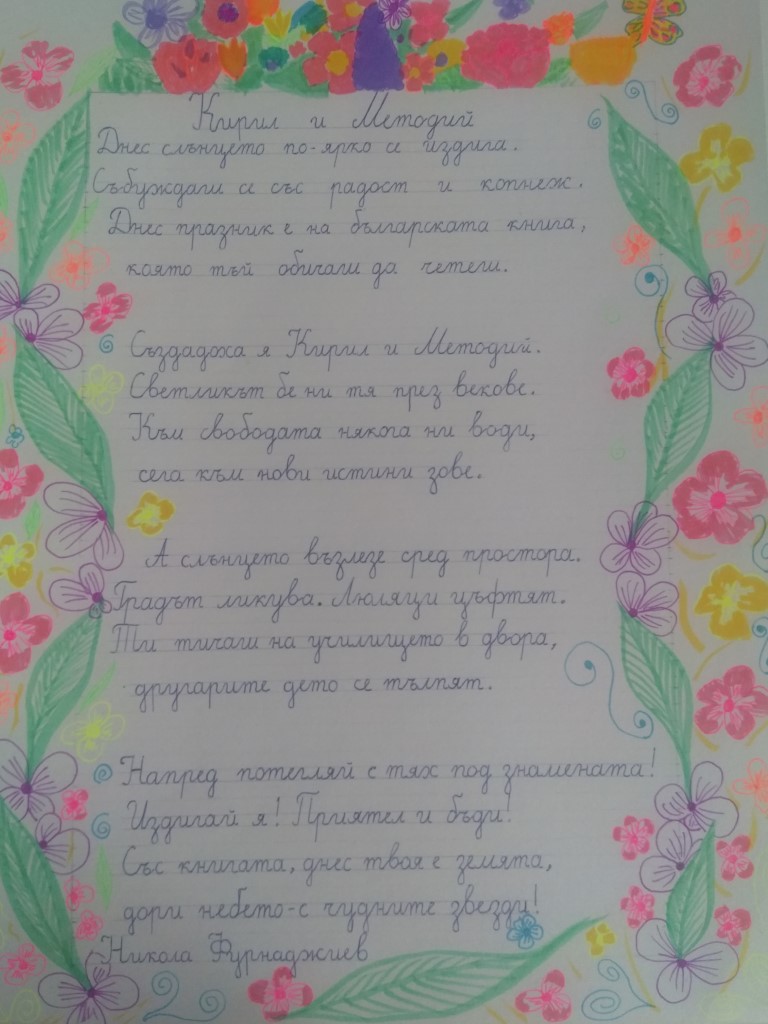 Кирил и Методий
Днес слънцето по-ярко се издига.
Събуждаш се със радост и копнеж.
Днес празник е на българската книга,
която тъй обичаш да четеш.
Създадоха я Кирил и Методий.
Светликът бе ни тя през векове.
Към свободата някога ни води,
сега към нови истини зове.
А слънцето възлезе сред простора.
Градът ликува. Люляци цъфтят.
Ти тичаш на училището в двора,
другарите дето се тълпят.
Напред потегляй с тях под знамената!
Издигай я! Приятел и бъди!
Със книгата, днес твоя е земята,
дори небето-с чудните звезди!
Никола Фурнаджиев